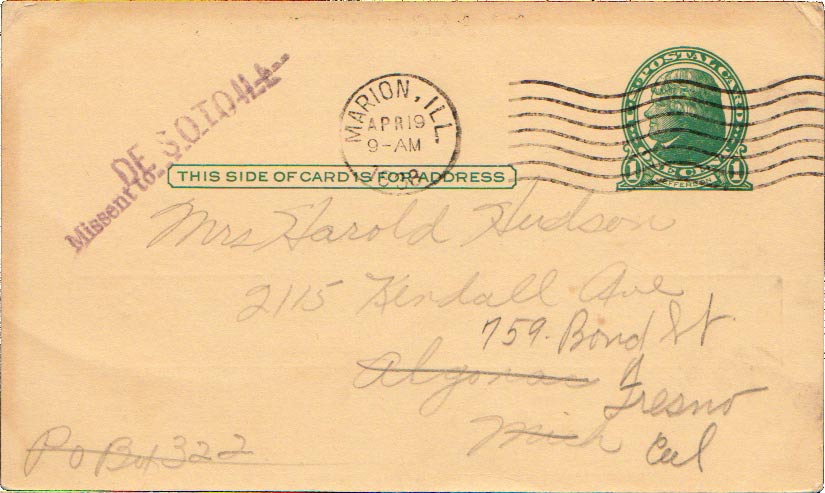 DE SOTO ILL
Missent to
MARION, ILL.
APR 19
9-AM
1938
U.S. POSTAL CARD
ONE CENT
1 JEFFERSON 1
THIS SIDE OF CARD IS FOR ADDRESS
Mrs Harold Hudson
2115 Kendall Ave
759. Bond St.
Algonac
Fresno
Mich Cal
Po Box 322